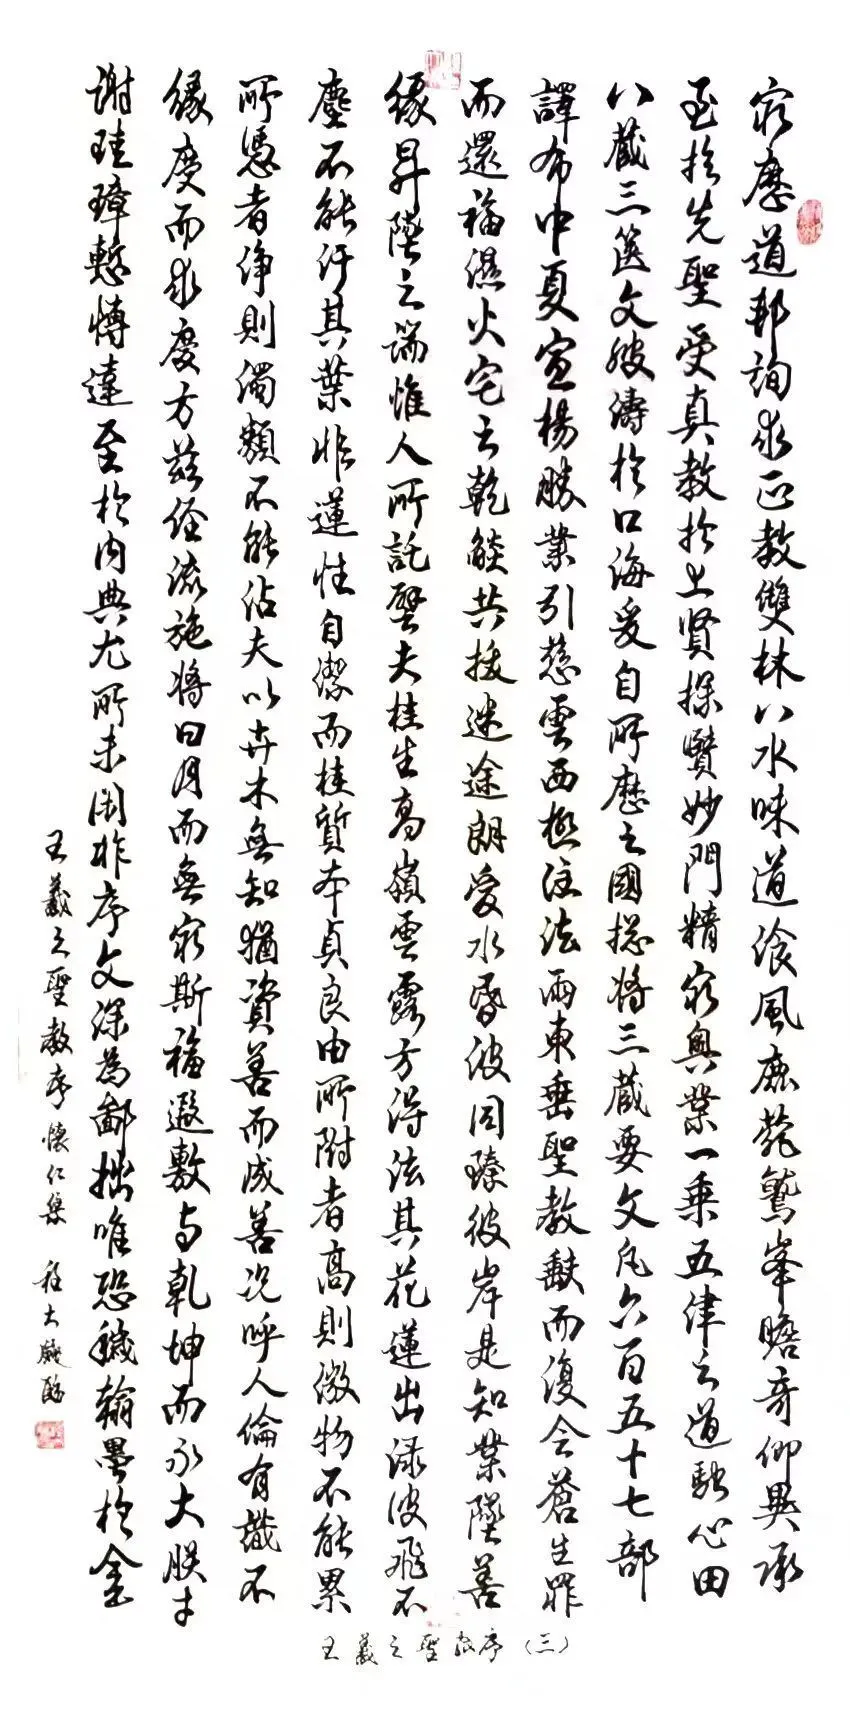 窮歷道邦詢求正教雙林八水味道飡風鹿菀鷲峯瞻奇仰異承
至於先聖受真教於上賢探賾妙門精窮奧業一乘五律之道馳心田
八藏三篋文波濤於口海爰自所歷之國摠將三藏要文凡六百五十七部
譯布中夏宣楊勝業引慈雲西極注法雨東垂聖教缺而復全蒼生罪
而還福濕火宅之乾燄共拔迷途朗愛水昏波同臻彼岸是知業墜善
緣昇墜之端惟人所託譬夫桂生高嶺雲露方得泫其花蓮出淥波飛不
塵不能汙其葉非蓮性自潔而桂質本貞良由所附者高則微物不能累
所憑者淨則濁類不能沾夫以卉木無知猶資善而成善況呼人倫有識不
緣慶而求慶方茲經流施將日月而無窮斯福遐敷与乾坤而永大朕才
謝珪璋慙愽達至於內典尤所未閑昨序文深為鄙拙唯恐穢翰墨於金
王羲之聖教序懷仁集 程大
王羲之聖教序（三）